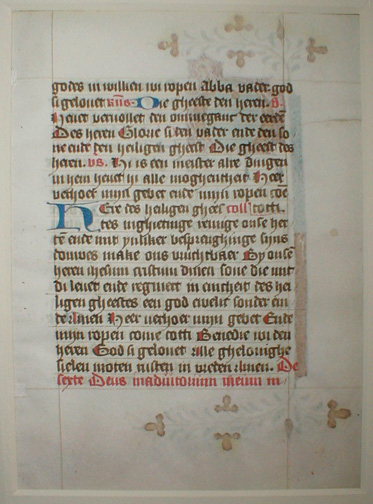 godes in willien wi ropen Abba vader god
si gelouet vers Die gheeste den heren
heuet veruollet den ommeganc der eerden
Des heren Glorie si den vader ende den so
ne ende den heiligen gheest Die gheest des
heren. vs. Hi is een meister alre dingen
in hem heuet hi alle moghentheit Heer
verhoer mijn gebet ende mijn ropen coe
HEre des heiligen gheest coll totti.
tes reinige onse her
ende mit
douwes make ons vruchtbaer By onsen
heren ihesum cristum dinen sone die mit
di leuet ende regniert in eincheit des hei
ligen gheestes een god ewelic sonder ein
de Amen Heer verhoer mijn gebet Ende
mijn ropen come totti Benedie wi den
heren God si gelouet Alle ghelouighe
sielen moten rusten in vreden Amen. De
sexte Deus in adiutorium meum in